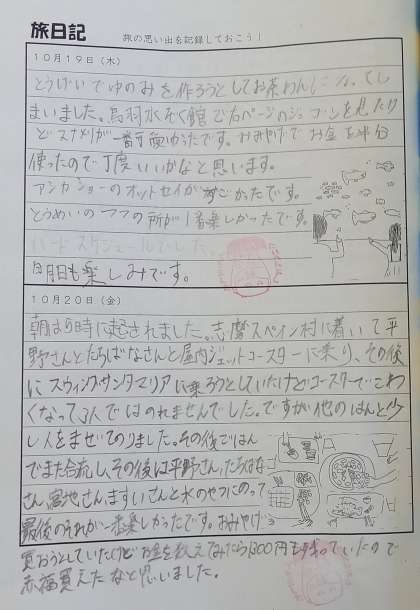 旅日記
旅の思い出を記録しておこう！
10月19日（木）
とうげいでゆのみを作ろうとしてお茶わんになってし
まいました。鳥羽水そく館で右ページのジュゴンを見たけ
どスナメリが一番可愛かったです。おみやげでお金を半分
使ったので丁度いいかなと思います。
アシカショーのオットセイがすごかったです。
とうめいの の所が1番楽しかったです。
ハードスケジュールでした。
明日も楽しみです。
10月20日（金）
朝は6時に起されました。志摩スペイン村に着いて平
野さんとたちばなさんと屋内ジェットコースターに乗り、その後
にスウィングサンタマリアに乗ろうとしていたけどコースターでこわ
くなって3人ではのれませんでした。ですが他のはんと少
し人をまぜてのりました。その後ごはん
でまた合流し、その後は平野さん、たちばな
さん、富地さん、ますいさんと水のやつにのって
最後のそれが一番楽しかったです。おみやげ
買おうとしていたけどお金を数えてみたら1300円も残っていたので
赤福買えたなと思いました。